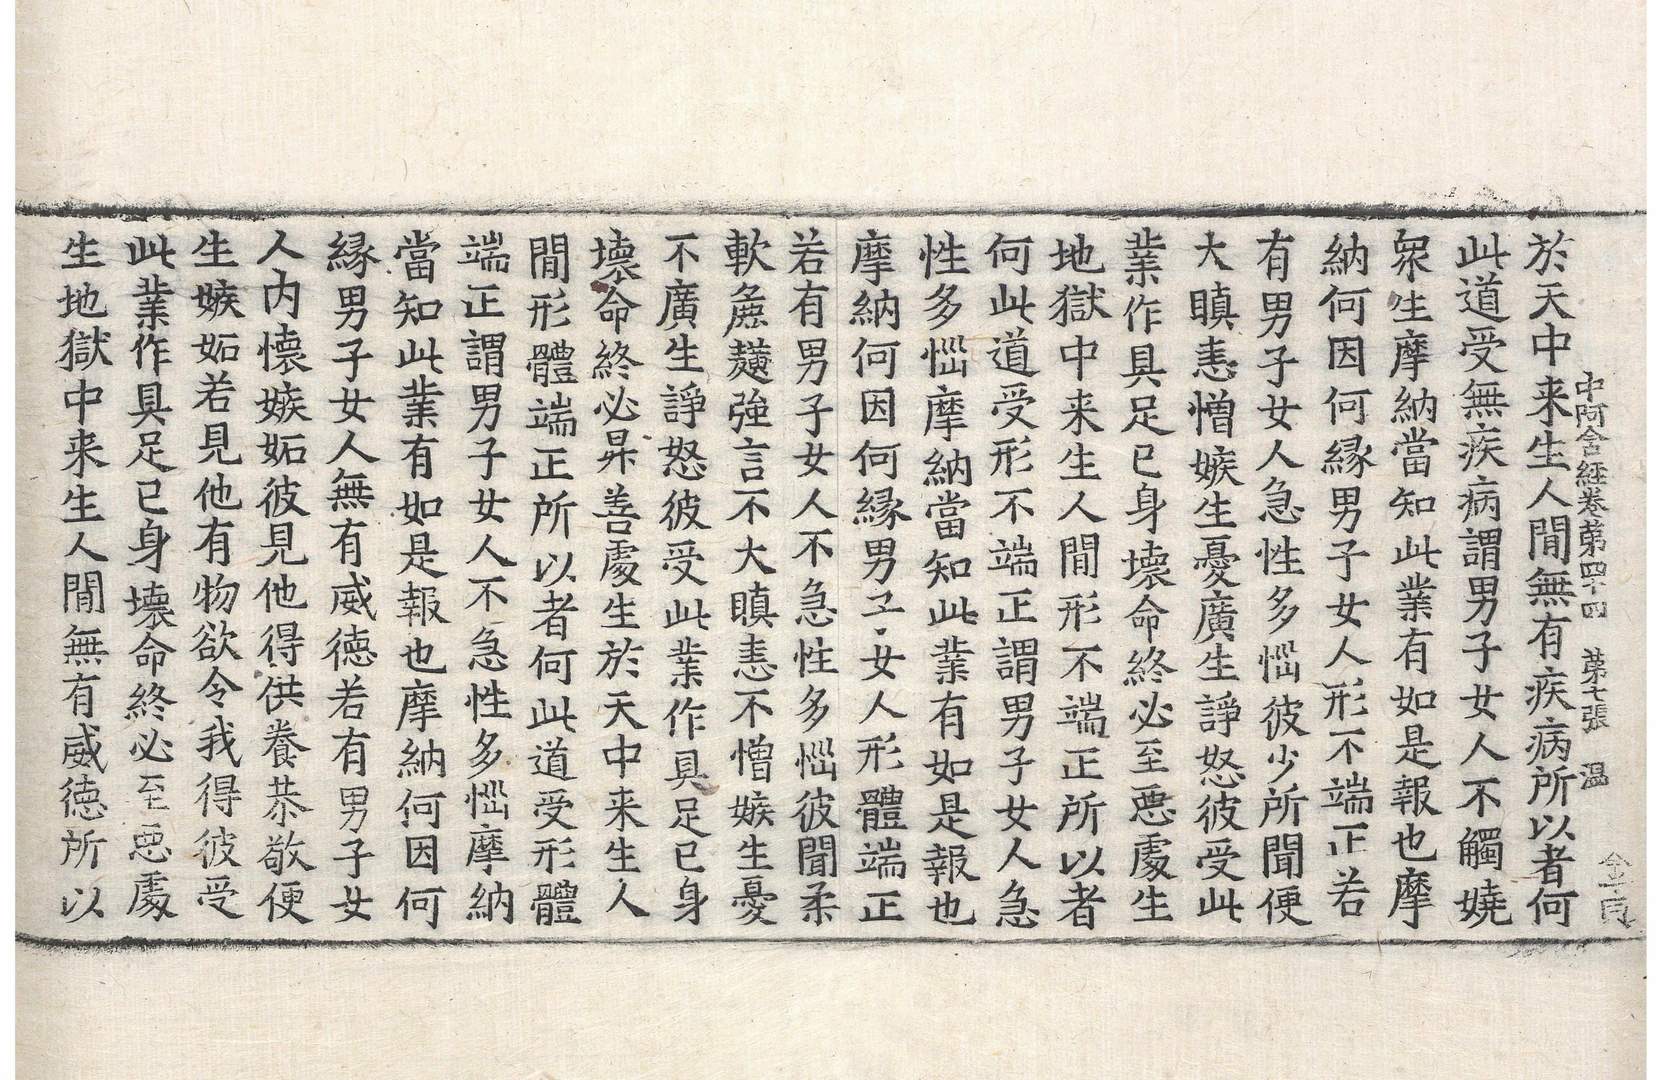 中阿含經卷第四十四　第七張　温
於天中来生人閒無有疾病所以者何
此道受無疾病謂男子女人不觸嬈
衆生摩納當知此業有如是報也摩
納何因何縁男子女人形不端正若
有男子女人急性多惱彼少所聞便
大瞋恚憎嫉生憂廣生諍怒彼受此
業作具足已身壞命終必至惡處生
地獄中来生人閒形不端正所以者
何此道受形不端正謂男子女人急
性多惱摩納當知此業有如是報也
摩納何因何縁男子女人形體端正
若有男子女人不急性多惱彼聞柔
軟麁麤強言不大瞋恚不憎嫉生憂
不廣生諍怒彼受此業作具足已身
壞命終必昇善處生於天中来生人
閒形體端正所以者何此道受形體
端正謂男子女人不急性多惱摩納
當知此業有如是報也摩納何因何
縁男子女人無有威德若有男子女
人内懐嫉妬彼見他得供養恭敬便
生嫉妬若見他有物欲令我得彼受
此業作具足已身壞命終必至惡處
生地獄中来生人閒無有威德所以